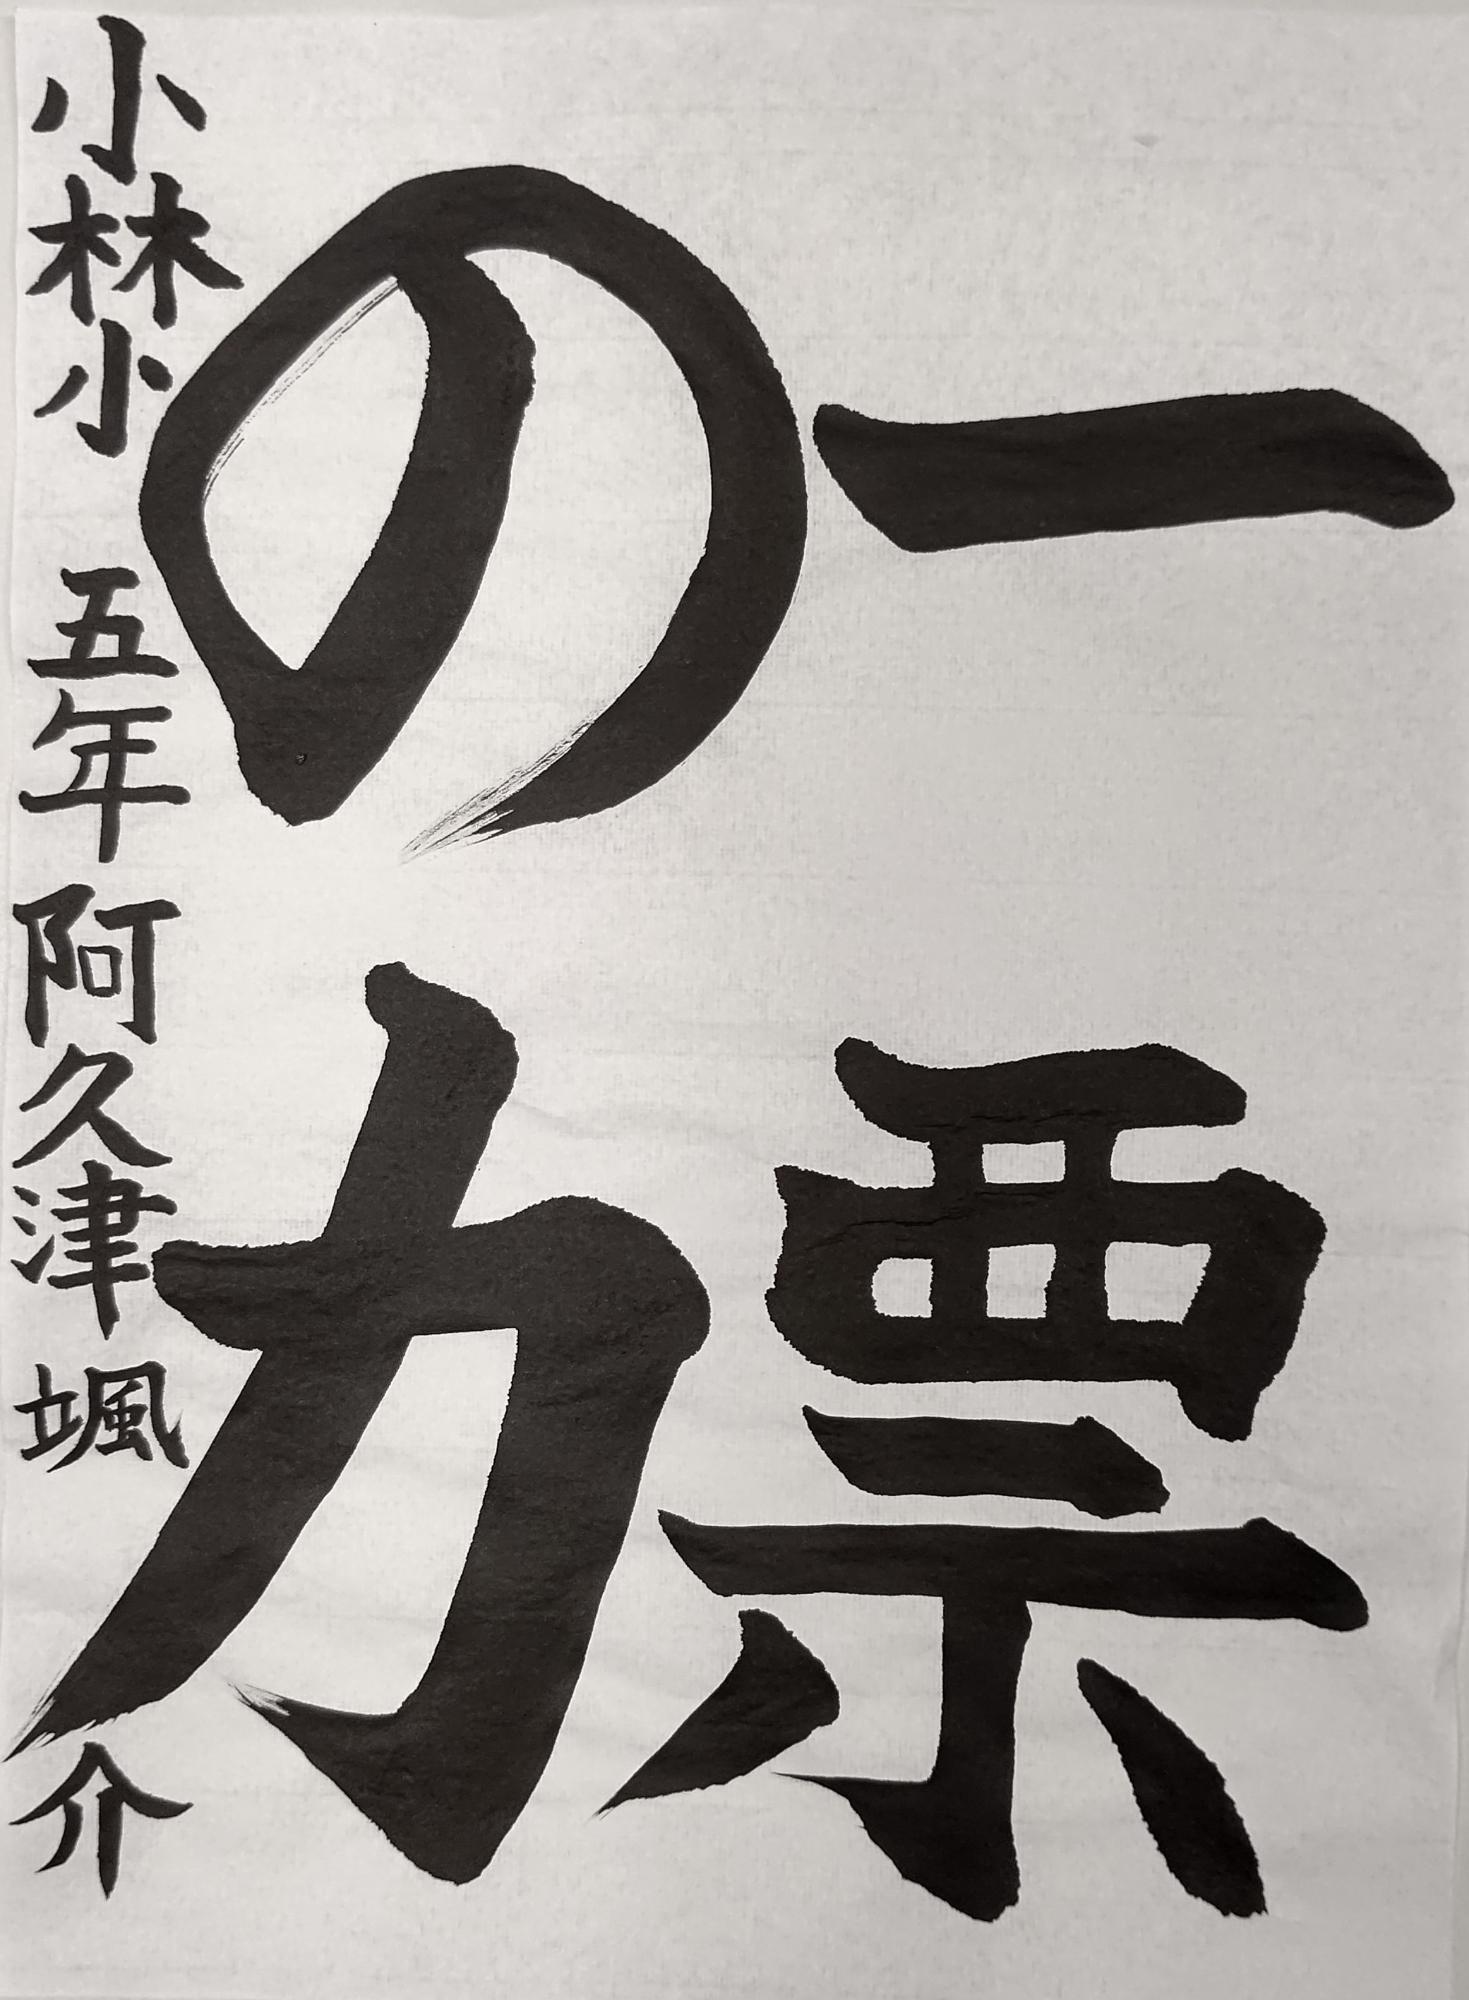 一票
の力
小林小 五年 阿久津 颯介